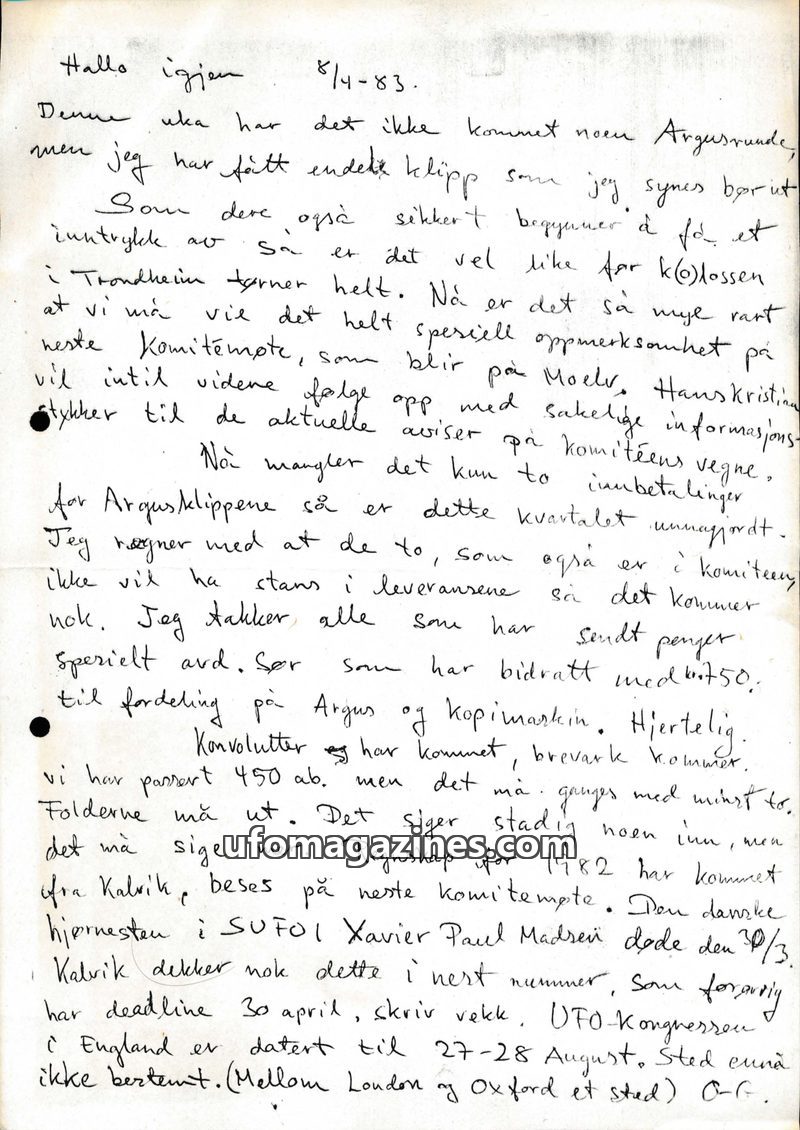 Hallo igjen 8/4-83.
Denne uka har det ikke kommet noen Argusrunde,
men jeg har fått endel klipp som jeg synes bør ut
Som dere også sikkert begynner å få et
inntrykk av så er det vel like før k(o)lossen
i Trondheim tørner helt. Nå er det så mye rart
at vi må vie det helt spesiell oppmerksomhet på
neste Komitémøte, som blir på Moelv. Hans Kristian
vil intil videre følge opp med sakelige informasjons-
stykker til de aktuelle aviser på komitéens vegne.
Nå mangler det kun to innbetalinger
for Argusklippene så er dette kvartalet unnagjordt.
Jeg regner med at de to, som også er i komiteen,
ikke vil ha stans i leveransene så det kommer
nok. Jeg takker alle som har sendt penger
spesielt avd. Sør som har bidratt med kr.750.
til fordeling på Argus og kopimaskin. Hjertelig.
Konvolutter har kommet, brevark kommer.
vi har passert 450 ab. men det må ganges med minst to.
Folderne må ut. Det siger stadig noen inn, men
det må sige ufomagazines.com 1982 har kommet
ifra Kalvik, beses på neste komitemøte. Den danske
hjørnesten i SUFOI Xavier Paul Madsen døde den 30/3.
Kalvik dekker nok dette i nest nummer, som forøvrig
har deadline 30 april, skriv vekk. UFO-Kongressen
i England er datert til 27-28 August. Sted ennå
ikke bestemt. (Mellom London og Oxford et sted) O-G.